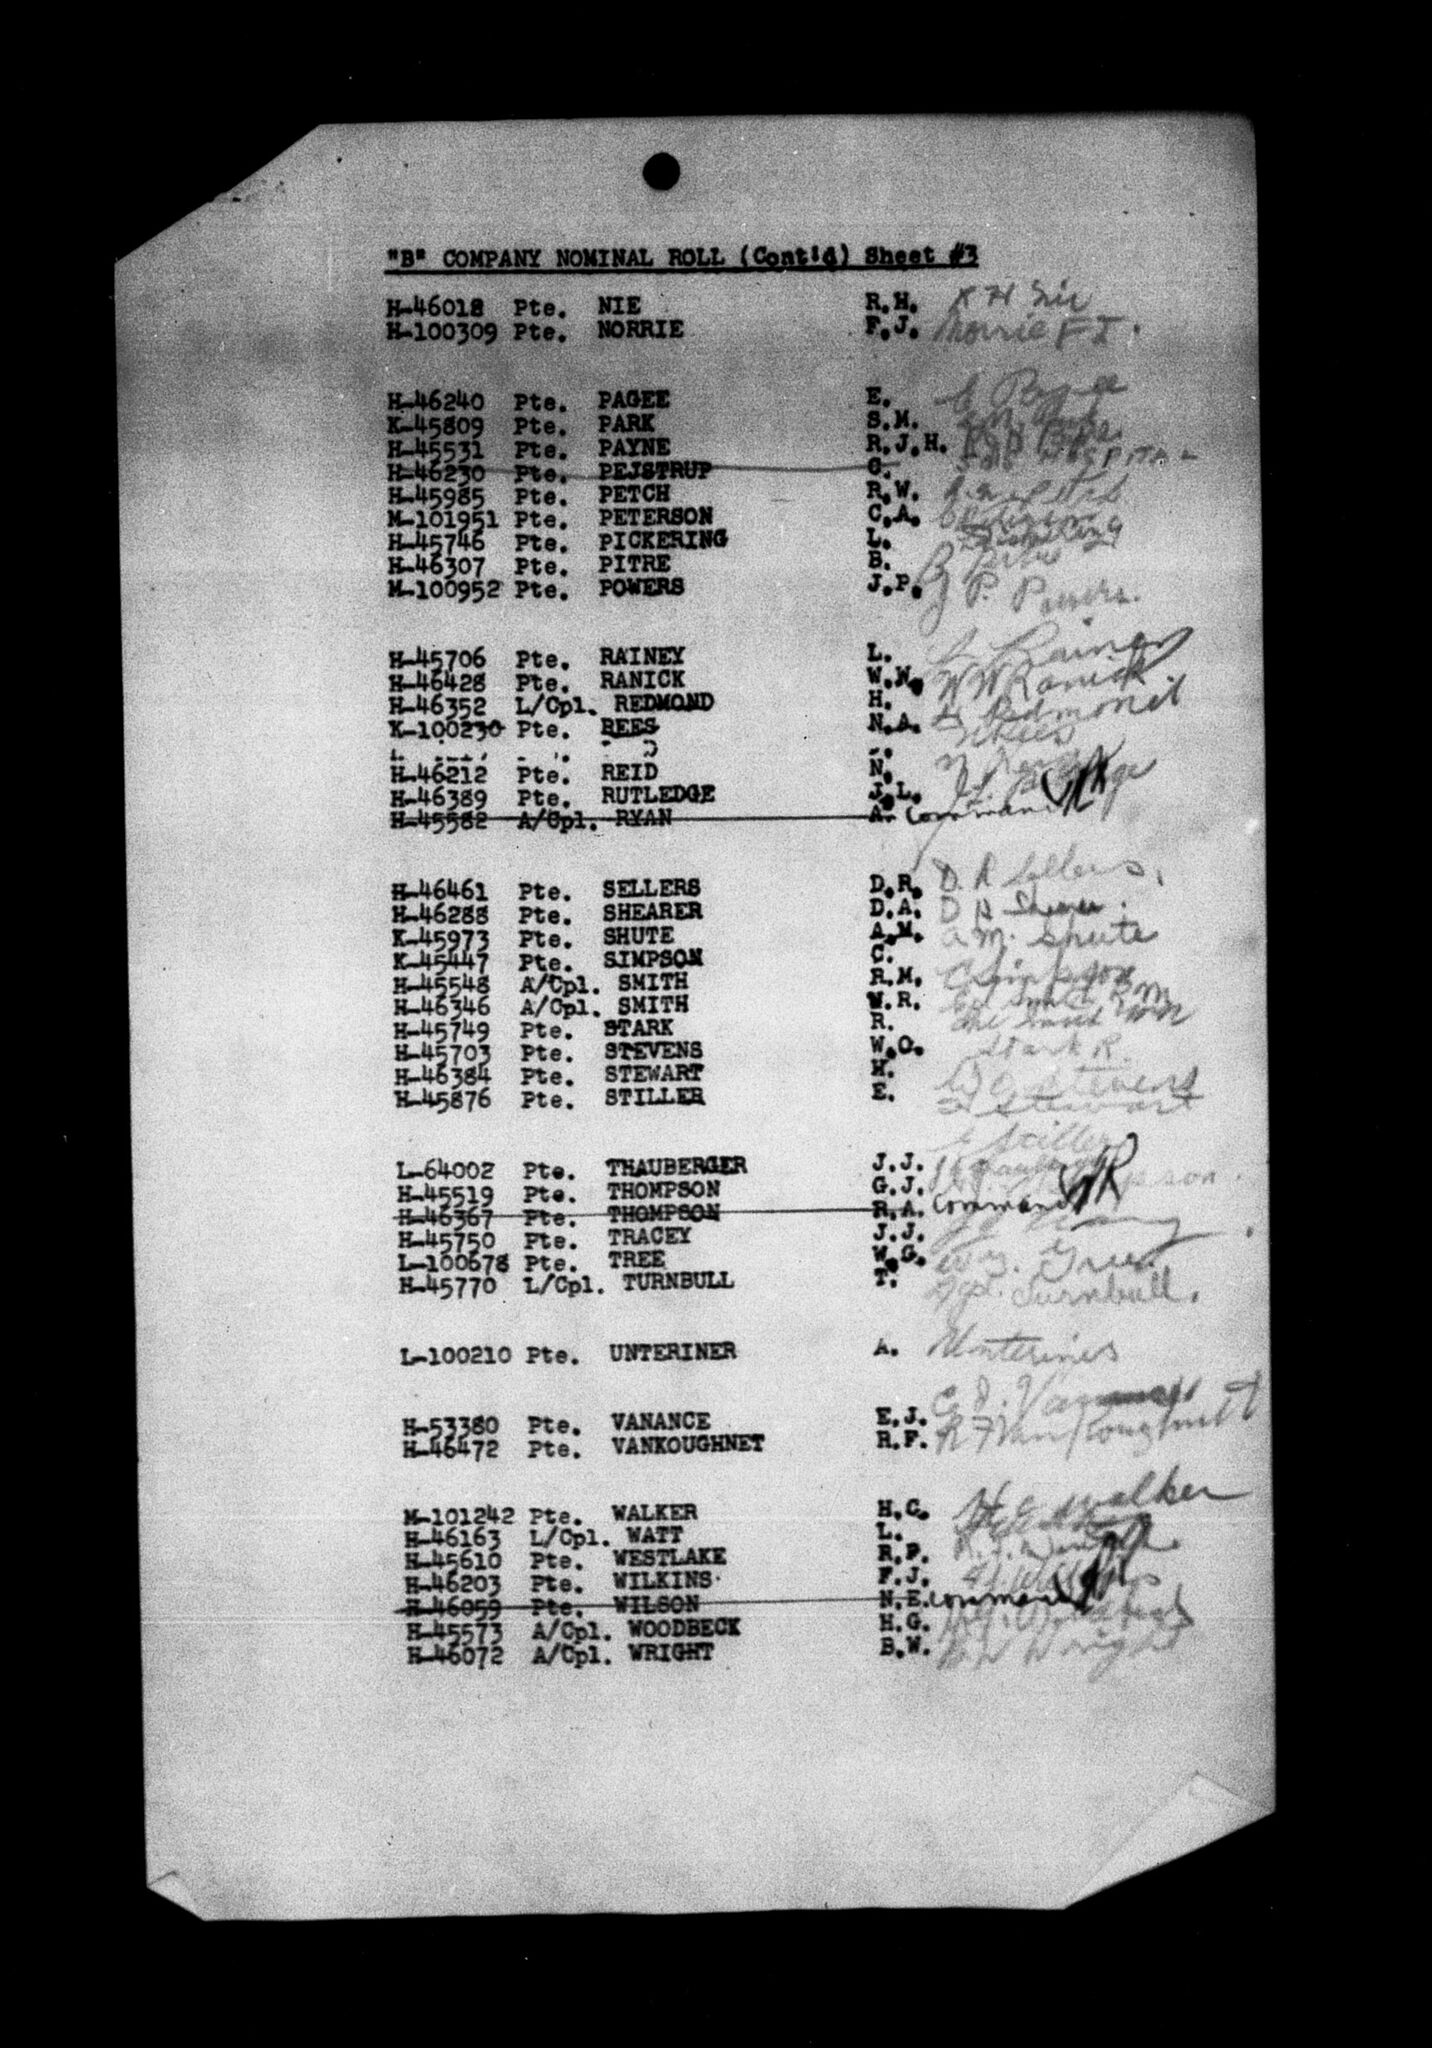 "B" COMPANY NOMINAL ROLL (Cont'd) Sheet #3
H-46018 Pte. NIE R.H. R H Nie
H-100309 Pte. NORRIE F.J. Norrie F J.
H-46240 Pte. PAGEE E. E Pagee
K-45809 Pte. PARK S.M. S.M. Park
H-45531 Pte. PAYNE R.J.H.
H-46230 Pte. PEJSTRUP C. HOSPITAL
H-45985 Pte. PETCH R.W.
M-101951 Pte. PETERSON C.A.
H-45746 Pte. PICKERING L. L Pickering
H-46307 Pte. PITRE B. B Pitre
M-100952 Pte. POWERS J.P. J P. Powers.
H-45706 Pte. RAINEY L. L Rainey
H-46428 Pte. RANICK W.W. W W Ranick
H-46352 L/Cpl. REDMOND H. H Redmond
K-100230 Pte. REES N.A. N Rees
H-46212 Pte. REID N.
H-46389 Pte. RUTLEDGE J.L.
H-45582 A/Cpl. RYAN A. Command
H-46461 Pte. SELLERS D.R. D. R Sellers.
H-46288 Pte. SHEARER D.A. D A Shearer.
K-45973 Pte. SHUTE A.M. a. M. Shute
K-45447 Pte. SIMPSON C. C Simpson
H-45548 A/Cpl. SMITH R.M.
H-46346 A/Cpl. SMITH W.R.
H-45749 Pte. STARK R. Stark R.
H-45703 Pte. STEVENS W.O. W O Stevens
H-46384 Pte. STEWART H. H Stewart
H-45876 Pte. STILLER E. E Stiller
L-64002 Pte. THAUBERGER J.J.
H-45519 Pte. THOMPSON G.J. Thompson.
H-46367 Pte. THOMPSON R.A. Command
H-45750 Pte. TRACEY J.J.
L-100678 Pte. TREE W.G. W.G. Tree.
H-45770 L/Cpl. TURNBULL T. Turnbull.
L-100210 Pte. UNTERINER A. Unteriner
H-53380 Pte. VANANCE E.J. E. J. Vanance
H-46472 Pte. VANKOUGHNET R.F. R F Van Koughnett
M-101242 Pte. WALKER H.C. H C Walker
H-46163 L/Cpl. WATT L.
H-45610 Pte. WESTLAKE R.P.
H-46203 Pte. WILKINS F.J. F J Wilkins
H-46059 Pte. WILSON N.E. Command
H-45573 A/Cpl. WOODBECK H.G. H.G. Woodbeck
H-46072 A/Cpl. WRIGHT B.W. B W Wright